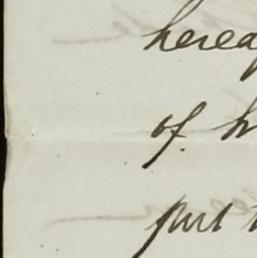 herea
of h
put t